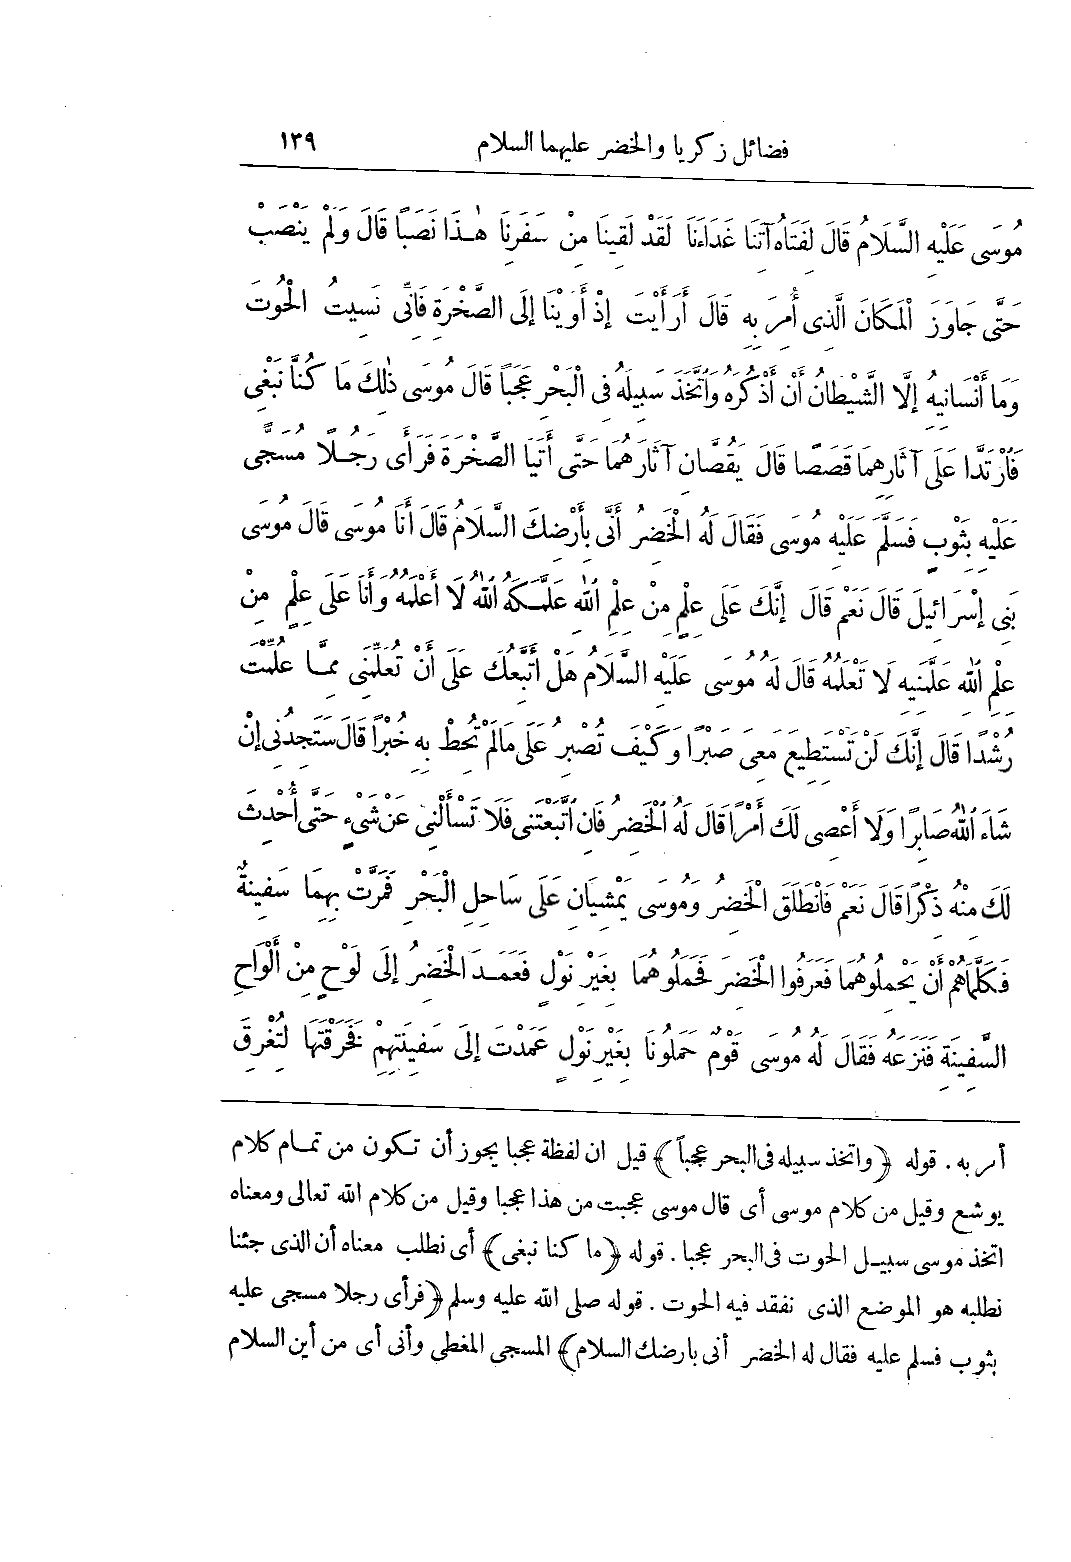 فضائل زكريا والخضر عليهما السلام ١٣٩
مُوسَى عَلَيْهِ السَّلَامُ قَالَ لِفَتَاهُ آتِنَا غَدَاءَنَا لَقَدْ لَقِينَا مِنْ سَفَرِنَا هٰذَا نَصَبًا قَالَ وَلَمْ يَنْصَبْ
حَتَّى جَاوَزَ الْمَكَانَ الَّذِى أُمِرَ بِهِ قَالَ أَرَأَيْتَ إِذْ أَوَيْنَا إِلَى الصَّخْرَةِ فَإِنِّى نَسِيتُ الْحُوتَ
وَمَا أَنْسَانِيهُ إِلَّا الشَّيْطَانُ أَنْ أَذْكُرَهُ وَاتَّخَذَ سَبِيلَهُ فِى الْبَحْرِ عَجَبًا قَالَ مُوسَى ذٰلِكَ مَا كُنَّا نَبْغِى
فَارْتَدَّا عَلَى آثَارِهِمَا قَصَصًا قَالَ يَقُصَّانِ آثَارَهُمَا حَتَّى أَتَيَا الصَّخْرَةَ فَرَأَى رَجُلًا مُسَجًّى
عَلَيْهِ بِثَوْبٍ فَسَلَّمَ عَلَيْهِ مُوسَى فَقَالَ لَهُ الْخَضِرُ أَنَّى بِأَرْضِكَ السَّلَامُ قَالَ أَنَا مُوسَى قَالَ مُوسَى
بَنِى إِسْرَائِيلَ قَالَ نَعَمْ قَالَ إِنَّكَ عَلَى عِلْمٍ مِنْ عِلْمِ اللهِ عَلَّمَكَهُ اللهُ لَا أَعْلَمُهُ وَأَنَا عَلَى عِلْمٍ مِنْ
عِلْمِ اللهِ عَلَّمَنِيهِ لَا تَعْلَمُهُ قَالَ لَهُ مُوسَى عَلَيْهِ السَّلَامُ هَلْ أَتَّبِعُكَ عَلَى أَنْ تُعَلِّمَنِى مِمَّا عُلِّمْتَ
رُشْدًا قَالَ إِنَّكَ لَنْ تَسْتَطِيعَ مَعِىَ صَبْرًا وَكَيْفَ تَصْبِرُ عَلَى مَالَمْ تُحِطْ بِهِ خُبْرًا قَالَ سَتَجِدُنِى إِنْ
شَاءَ اللهُ صَابِرًا وَلَا أَعْصِى لَكَ أَمْرًا قَالَ لَهُ الْخَضِرُ فَإِنِ اتَّبَعْتَنِى فَلَا تَسْأَلْنِى عَنْ شَىْءٍ حَتَّى أُحْدِثَ
لَكَ مِنْهُ ذِكْرًا قَالَ نَعَمْ فَانْطَلَقَ الْخَضِرُ وَمُوسَى يَمْشِيَانِ عَلَى سَاحِلِ الْبَحْرِ فَمَرَّتْ بِهِمَا سَفِينَةٌ
فَكَلَّمَاهُمْ أَنْ يَحْمِلُوهُمَا فَعَرَفُوا الْخَضِرَ فَحَمَلُوهُمَا بِغَيْرِ نَوْلٍ فَعَمَدَ الْخَضِرُ إِلَى لَوْحٍ مِنْ أَلْوَاحِ
السَّفِينَةِ فَنَزَعَهُ فَقَالَ لَهُ مُوسَى قَوْمٌ حَمَلُونَا بِغَيْرِ نَوْلٍ عَمَدْتَ إِلَى سَفِينَتِهِمْ فَخَرَقْتَهَا لِتُغْرِقَ
أمر به. قوله ﴿واتخذ سبيله فى البحر عجبا﴾ قيل ان لفظة عجبا يجوز أن تكون من تمام كلام
يوشع وقيل من كلام موسى أى قال موسى عجبت من هذا عجبا وقيل من كلام الله تعالى ومعناه
اتخذ موسى سبيل الحوت فى البحر عجبا. قوله ﴿ما كنا نبغى﴾ أى نطلب معناه أن الذى جئنا
نطلبه هو الموضع الذى نفقد فيه الحوت. قوله صلى الله عليه وسلم ﴿فرأى رجلا مسجى عليه
بثوب فسلم عليه فقال له الخضر أنى بارضك السلام﴾ المسجى المغطى وأنى أى من أين السلام